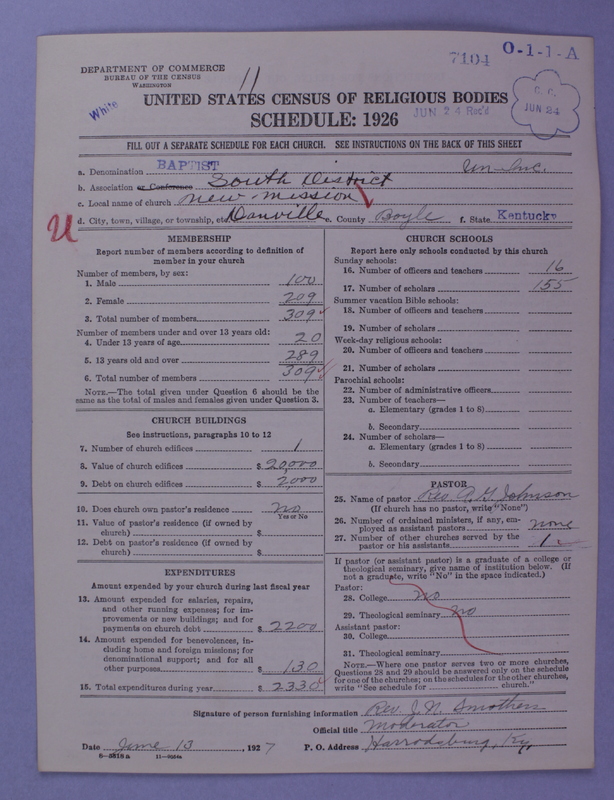 7104 O-1-1-A
DEPARTMENT OF COMMERCE
BUREAU OF THE CENSUS
WASHINGTON
11
White
UNITED STATES CENSUS OF RELIGIOUS BODIES
SCHEDULE: 1926
JUN 24 Rec'd
C. C.
JUN 24
FILL OUT A SEPARATE SCHEDULE FOR EACH CHURCH. SEE INSTRUCTIONS ON THE BACK OF THIS SHEET
a. Denomination BAPTIST Un-Inc.
b. Association or Conference South District
c. Local name of church New Mission
d. City, town, village, or township, etc. Danville e. County Boyle f. State Kentucky
U
MEMBERSHIP
Report number of members according to definition of
member in your church
Number of members, by sex:
1. Male 100
2. Female 209
3. Total number of members 309
Number of members under and over 13 years old:
4. Under 13 years of age 20
5. 13 years old and over 289
6. Total number of members 309
NOTE.—The total given under Question 6 should be the
same as the total of males and females given under Question 3.
CHURCH BUILDINGS
See instructions, paragraphs 10 to 12
7. Number of church edifices 1
8. Value of church edifices $20,000
9. Debt on church edifices $2,000
10. Does church own pastor's residence? no
Yes or No
11. Value of pastor's residence (if owned by
church) $
12. Debt on pastor's residence (if owned by
church) $
EXPENDITURES
Amount expended by your church during last fiscal year
13. Amount expended for salaries, repairs,
and other running expenses; for im-
provements or new buildings; and for
payments on church debt $2200
14. Amount expended for benevolences, in-
cluding home and foreign missions; for
denominational support; and for all
other purposes $130
15. Total expenditures during year $2330
CHURCH SCHOOLS
Report here only schools conducted by this church
Sunday schools:
16. Number of officers and teachers 16
17. Number of scholars 155
Summer vacation Bible schools:
18. Number of officers and teachers
19. Number of scholars
Week-day religious schools:
20. Number of officers and teachers
21. Number of scholars
Parochial schools:
22. Number of administrative officers
23. Number of teachers—
a. Elementary (grades 1 to 8)
b. Secondary
24. Number of scholars—
a. Elementary (grades 1 to 8)
b. Secondary
PASTOR
25. Name of pastor Rev. A. G. Johnson
(If church has no pastor, write "None")
26. Number of ordained ministers, if any, em-
ployed as assistant pastors none
27. Number of other churches served by the
pastor or his assistants 1
If pastor (or assistant pastor) is a graduate of a college or
theological seminary, give name of institution below. (If
not a graduate, write "No" in the space indicated.)
Pastor:
28. College no
29. Theological seminary no
Assistant pastor:
30. College
31. Theological seminary
NOTE.—Where one pastor serves two or more churches,
Questions 28 and 29 should be answered only on the schedule
for one of the churches; on schedules for the other churches,
write "See schedule for church."
Signature of person furnishing information Rev. J. N. Smothers
Official title Moderator
Date June 13, 1927 P. O. Address Harrodsburg, Ky.